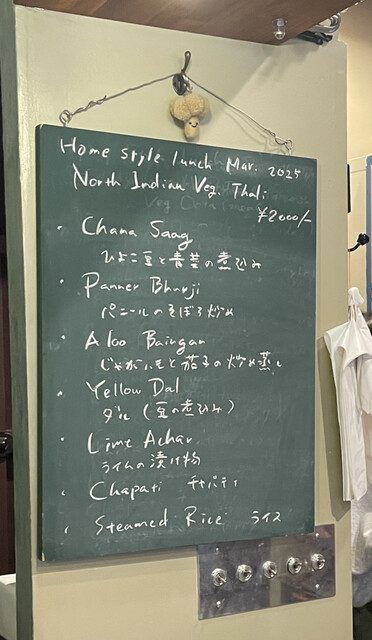 Home style lunch Mar. 2025
North Indian Veg. Thali
¥2000/-
・ Chana Saag
ひよこ豆と青菜の煮込み
・ Panner Bhurji
パニールのそぼろ炒め
・ Aloo Baingan
じゃがいもと茄子の炒め蒸し
・ Yellow Dal
ダル (豆の煮込み)
・ Lime Achar
ライムの漬け物
・ Chapati チャパティ
・ Steamed Rice ライス